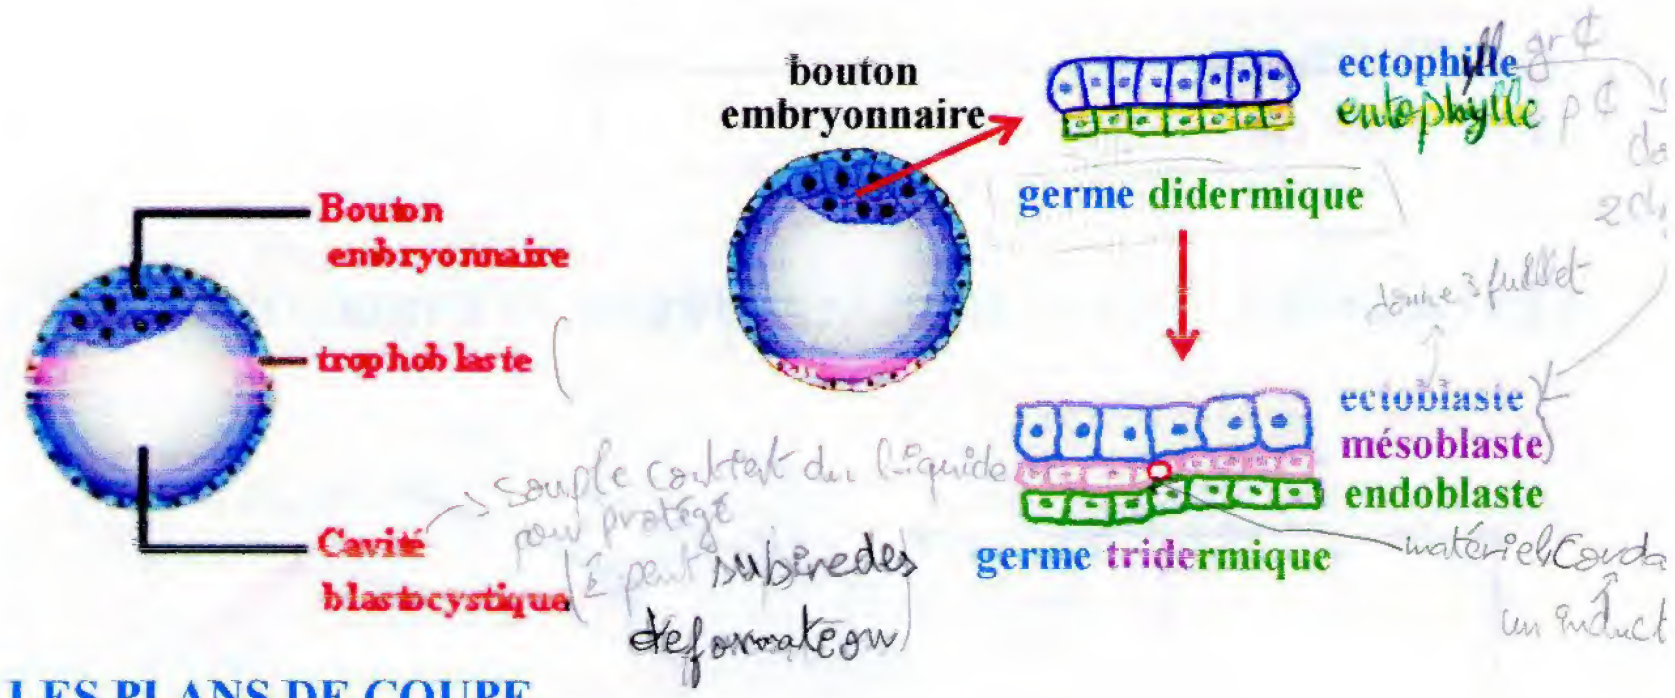 Bouton
embryonnaire
trophoblaste
Cavité
blastocystique
souple contient du liquide
pour protégé
peut subire des
déformation
bouton
embryonnaire
ectophylle gr ₵
entophylle p ₵
germe didermique
donne 3 fuillet
ectoblaste
mésoblaste
endoblaste
germe tridermique
matériel Corda
un induct
LES PLANS DE COUPE